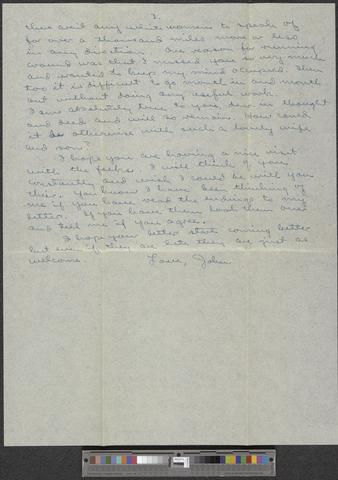 2.
there arn't any white women to speak of
for over a thousand miles more or less
in any direction. One reason for running
around was that I missed you so very much
and wanted to keep my mind occupied. Then
too it is difficult to go month in and month
out without doing any useful work.
I am absolutely true to you, dear, in thought
and deed and will so remain. How could
it be otherwise with such a lovely wife
and son?
I hope you are having a nice visit
with the folks. I will think of you
constantly and wish I could be with you
there. You know I have been thinking of
me if you have read the endings to my
letter. If you have them look them over
and tell me if you agree.
I hope your letter starts coming better
but even if they are late they are just as
welcome. Love, John.